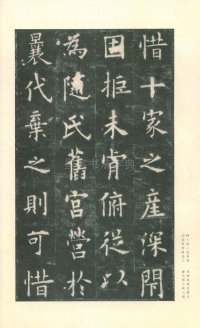 惜十家之產深閇
固拒未肯俯從以
為隨氏舊宮營於
曩代棄之則可惜